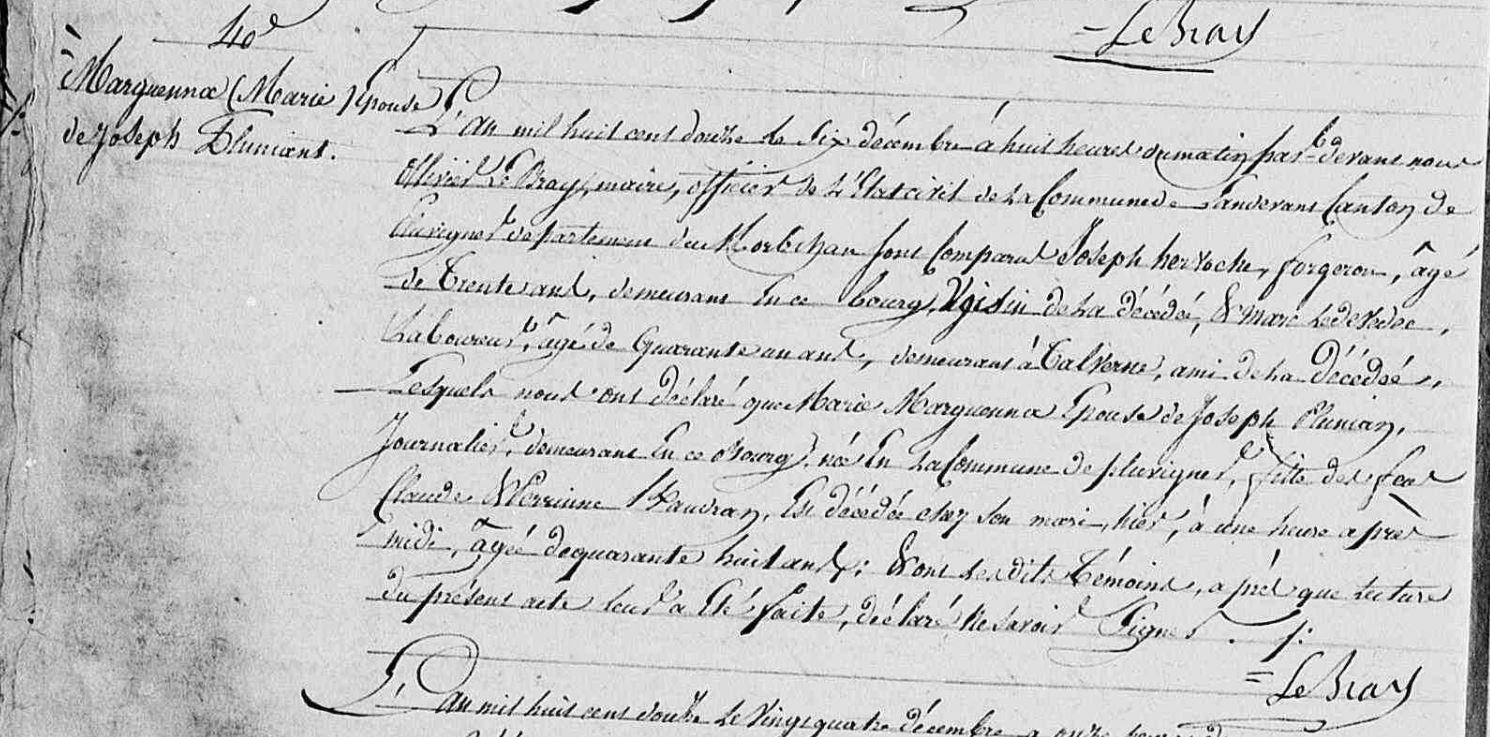 = Le Bray
40e
Marguenna (Marie) Epouse
de Joseph Plunian.
L'an mil huit cent douze le six décembre à huit heures du matin par-devant nous
Ollivier Le Bray, maire, officier de L'Etat civil de La Commune de Landevant Canton de
Pluvigner département du Morbihan sont Comparus Joseph hervoche, forgeron, âgé
de Trente ans, demeurant En ce bourg, Voisin de La décédé, & marc
Laboureur, âgé de Quarante un ans, demeurant à Talverne, ami de La décédée,
Lesquels nous ont déclaré que Marie Marguenna Epouse de Joseph Plunian,
Journalier, demeurant En ce Bourg, née En La Commune de pluvigner, fille des feus
Claude & Perrinne, Est décédée chez son mari, hier, à une heure après
midi, âgée de quarante huit ans; & ont Lesdits Témoins, après que Lecture
du présent acte leur a Eté faite, déclaré Ne savoir Signer ./.
= Le Bray
L'an mil huit cent douze Le Vingt quatre décembre a onze